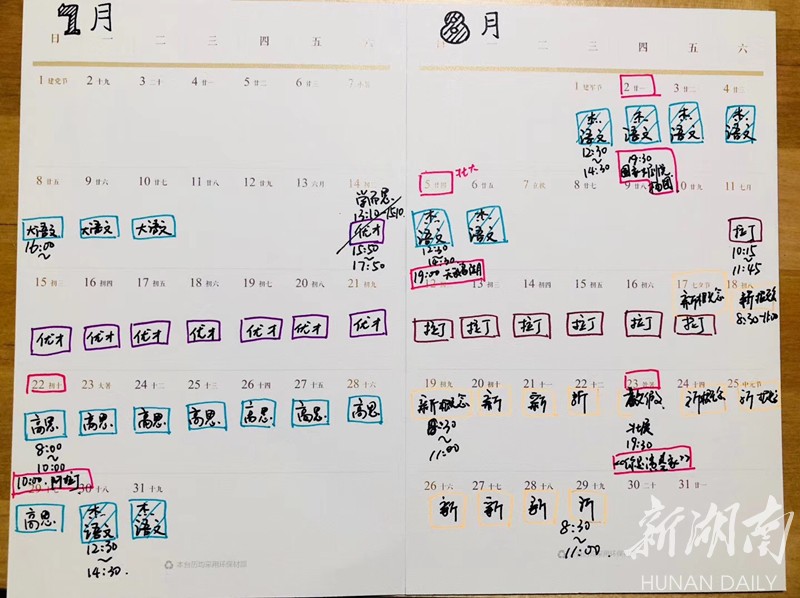 7月
日 一 二 三 四 五 六
1 建党节 2 十九 3 二十 4 廿一 5 廿二 6 廿三 7 小暑
8 廿五 9 廿六 10 廿七 11 廿八 12 廿九 13 六月 14 初二
大语文 大语文 大语文
16:00
~
学而思
13:10~15:10
优才
15:50
~
17:50
15 初三 16 初四 17 初五 18 初六 19 初七 20 初八 21 初九
优才 优才 优才 优才 优才 优才 优才
22 初十 23 大暑 24 十二 25 十三 26 十四 27 十五 28 十六
高思 高思 高思 高思 高思 高思 高思
8:00
~
10:00
10:00
29 十七 30 十八 31 十九
高思 杰 语文 杰 语文
12:30
~
14:30
8月
一 二 三 四 五 六
1 建军节 2 廿一 3 廿二 4 廿三
杰 语文 杰 语文 杰 语文 杰 语文
12:30
~
14:30
19:30
国家
5 廿四 6 廿五 7 立秋 8 廿七 9 廿八 10 廿九 11 七月
北大
杰 语文 杰 语文
12:30
~
14:30
19:00 天鹅湖
拉丁
10:15
~
11:45
12 初二 13 初三 14 初四 15 初五 16 初六 17 七夕节 18 初八
拉丁 拉丁 拉丁 拉丁 拉丁 拉丁
新概念 新概念
8:30~11:00
19 初九 20 初十 21 十一 22 十二 23 处暑 24 十四 25 中元节
新概念 新 新 新 新概念 新概念
8:30
~
11:00
北展
19:30
26 十六 27 十七 28 十八 29 十九 30 二十 31 廿一
新 新 新 新
8:30
~
11:00
新湖南
HUNAN DAILY